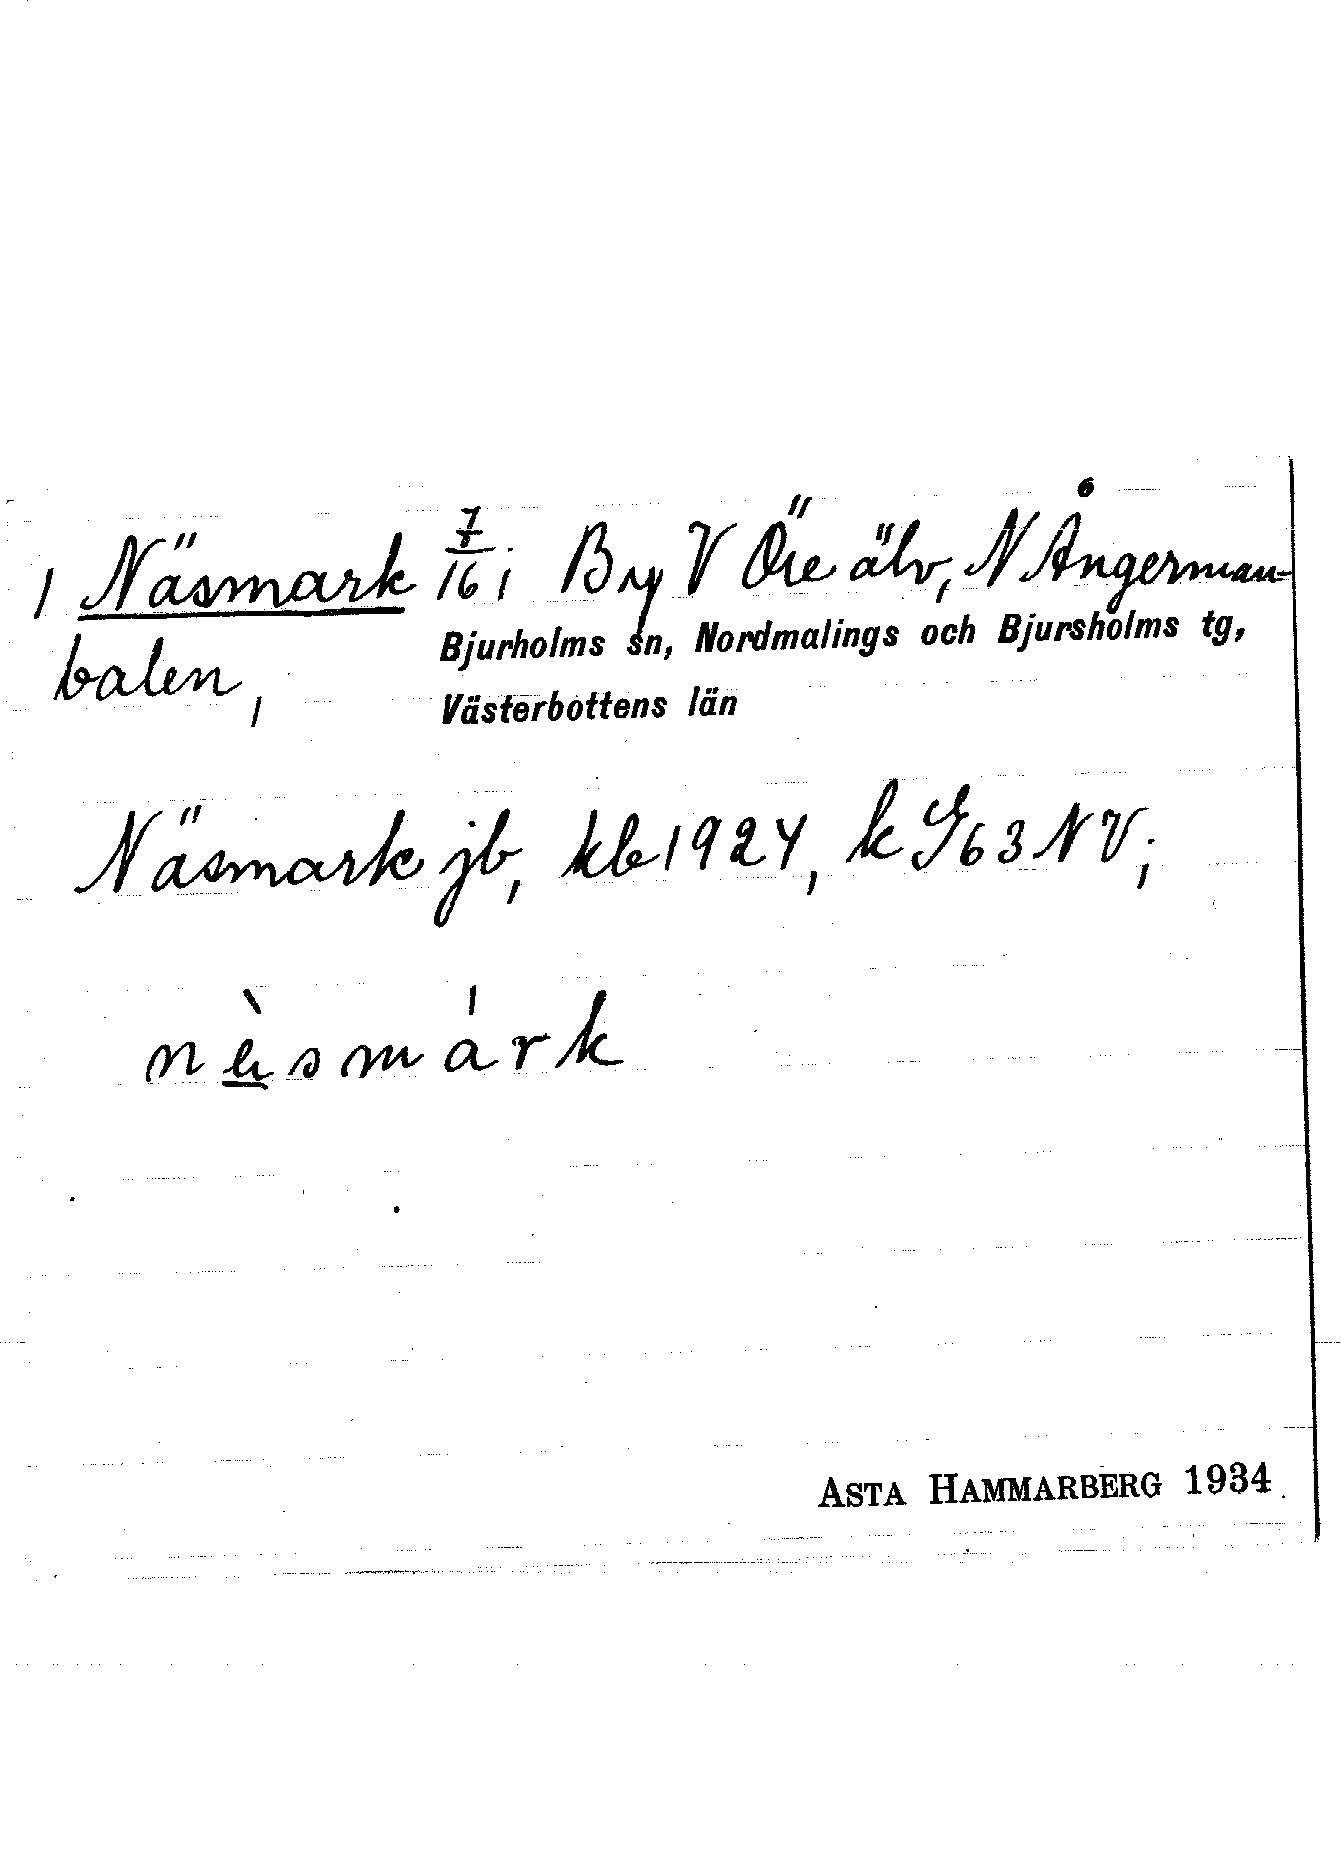 1 Näsmark 7/16; By V Öre älv, N Ångerman-
balen, Bjurholms sn, Nordmalings och Bjursholms tg,
Västerbottens län
Näsmark jb, kb 1924, k G63NV;
nèsmárk
ASTA HAMMARBERG 1934